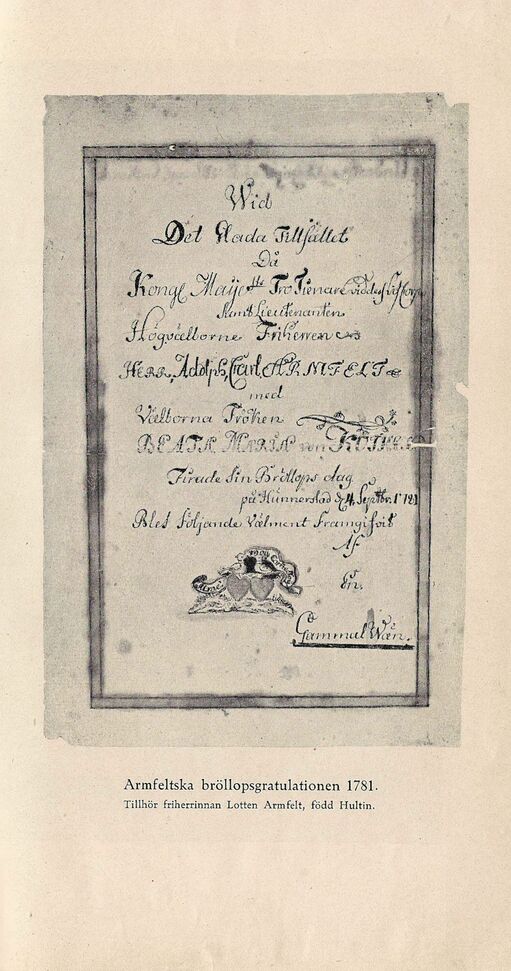 Wid
Det Glada Tillfället
Då
Kongl Maijets Tro Tienare
samt Lieutenanten
Högvälborne Friherren
HERR, Adolph, Carl ARMFELT
med
Välborna Fröken
BEATA MARIA von
Firade Sin Bröllops dag
på Hunnerstad d 4 Septbr. 1781
Blef följande Välment Framgifvit
Af
En.
Gammal Wän.
Armfeltska bröllopsgratulationen 1781.
Tillhör friherrinnan Lotten Armfelt, född Hultin.